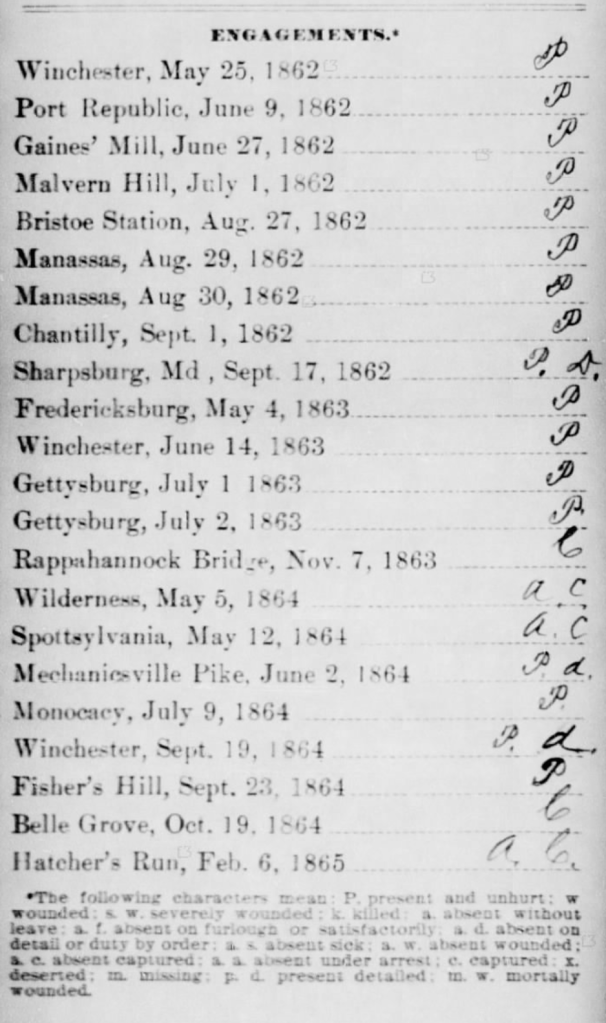 ENGAGEMENTS.*
Winchester, May 25, 1862 P
Port Republic, June 9, 1862 P
Gaines' Mill, June 27, 1862 P
Malvern Hill, July 1, 1862 P
Bristoe Station, Aug. 27, 1862 P
Manassas, Aug. 29, 1862 P
Manassas, Aug 30, 1862 P
Chantilly, Sept. 1, 1862 P
Sharpsburg, Md , Sept. 17, 1862 P. D.
Fredericksburg, May 4, 1863 P
Winchester, June 14, 1863 P
Gettysburg, July 1 1863 P
Gettysburg, July 2, 1863 P.
Rappahannock Bridge, Nov. 7, 1863 C
Wilderness, May 5, 1864 a. C
Spottsylvania, May 12, 1864 a. C
Mechanicsville Pike, June 2, 1864 P. d.
Monocacy, July 9, 1864 P.
Winchester, Sept. 19, 1864 P. d.
Fisher's Hill, Sept. 23, 1864 P
Belle Grove, Oct. 19, 1864 C
Hatcher's Run, Feb. 6, 1865 a. C.
*The following characters mean: P. present and unhurt; w
wounded; s. w. severely wounded; k. killed; a. absent without
leave; a. f. absent on furlough or satisfactorily; a. d. absent on
detail or duty by order; a. s. absent sick; a. w. absent wounded;
a. c. absent captured; a. a. absent under arrest; c. captured; x.
deserted; m. missing; p. d. present detailed; m. w. mortally
wounded.